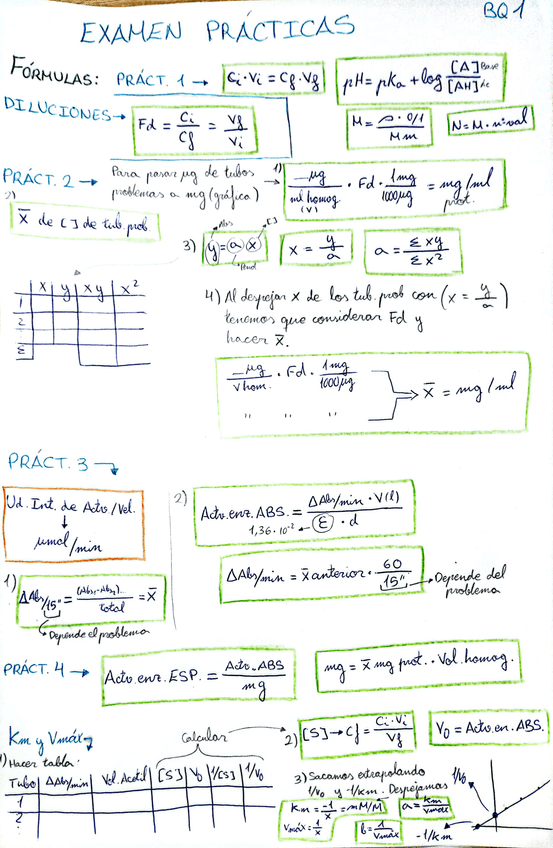 BQ1
EXAMEN PRÁCTICAS
FÓRMULAS: PRÁCT. 1 → Ci·Vi = Cf·Vf
pH = pKa + log [A] Base / [AH] Ác
DILUCIONES → Fd = Ci/Cf = Vf/Vi
M = ρ·0/1 / Mm
N = M·nºval
PRÁCT. 2 → Para pasar μg de tubos
problemas a mg (gráfica)
1) —μg / ml homog. (V) · Fd · 1mg / 1000μg = mg/ml prot.
2) X̄ de [ ] de tub. prob
3) y = a x
Abs
[ ]
Pend
x = y/a
a = Σxy / Σx²
x y xy x²
1
2
Σ
4) Al despejar x de los tub. prob con (x = y/a)
tenemos que considerar Fd y
hacer X̄.
—μg / V hom. · Fd · 1mg / 1000μg
" " "
→ X̄ = mg/ml
PRÁCT. 3
Ud. Int. de Actv/Vel.
↓
μmol/min
1) ΔAbs/15" = (Abs1-Abs2)... / total = X̄
Depende el problema
2) Actv. enz. ABS. = ΔAbs/min · V(l) / ε · d
1,36·10⁻²
ΔAbs/min = X̄ anterior · 60 / 15"
Depende del
problema
PRÁCT. 4 → Actv. enz. ESP. = Actv. ABS / mg
mg = X̄ mg prot. · Vol. homog.
Km y Vmáx
1) Hacer tabla:
Calcular
Tubo ΔAbs/min Vol. Acetil [S] V0 1/[S] 1/V0
1
2
:
2) [S] → Cf = Ci·Vi / Vf
V0 = Actv. en. ABS.
3) Sacamos extrapolando
1/V0 y -1/Km. Despejamos
Km = -1/x = mM/M
a = Km/Vmáx
Vmáx = 1/x
b = 1/Vmáx
1/V0
-1/Km